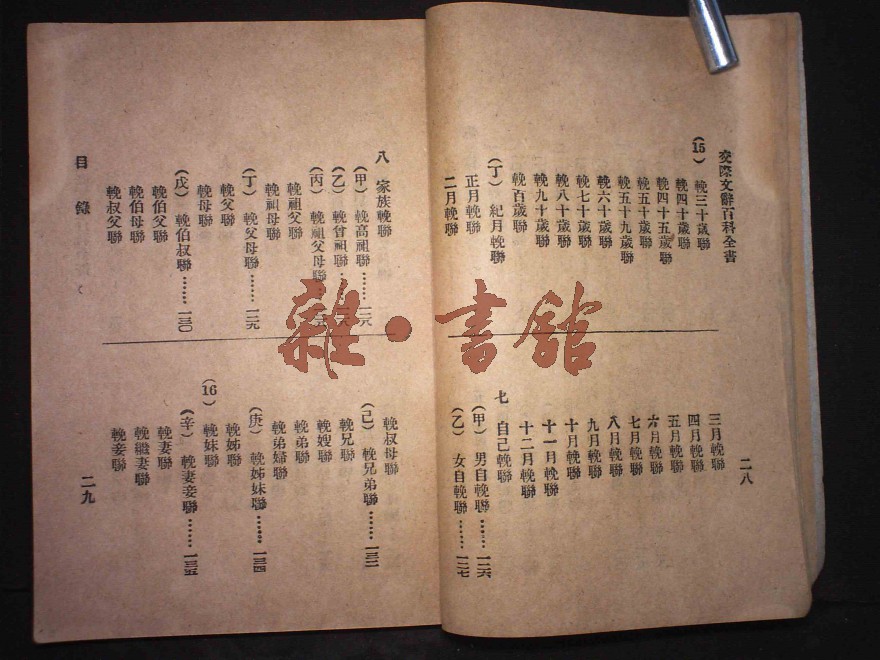 交際文辭百科全書
(15) 輓三十歲聯
輓四十歲聯
輓四十五歲聯
輓五十歲聯
輓五十九歲聯
輓六十歲聯
輓七十歲聯
輓八十歲聯
輓九十歲聯
輓百歲聯
(丁) 紀月輓聯
正月輓聯
二月輓聯
三月輓聯
四月輓聯
五月輓聯
六月輓聯
七月輓聯
八月輓聯
九月輓聯
十月輓聯
十一月輓聯
十二月輓聯
七 自己輓聯
(甲) 男自輓聯……一二六
(乙) 女自輓聯……一二七
二八
八 家族輓聯
(甲) 輓高祖聯……一二八
(乙) 輓曾祖聯……
(丙) 輓祖父母聯……
輓祖父聯
輓祖母聯
(丁) 輓父母聯……一二九
輓父聯
輓母聯
(戊) 輓伯叔聯……一三〇
輓伯父聯
輓伯母聯
輓叔父聯
輓叔母聯
(己) 輓兄弟聯……一三二
輓兄聯
輓嫂聯
輓弟聯
輓弟婦聯
(庚) 輓姊妹聯……一三四
輓姊聯
(16) 輓妹聯
(辛) 輓妻妾聯……一三五
輓妻聯
輓繼妻聯
輓妾聯
目錄
二九
雜·書館